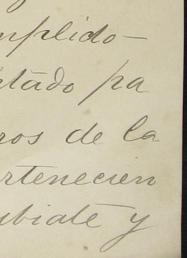 mplido-
ntado pa
ros de la
rtenecien
ubiate y